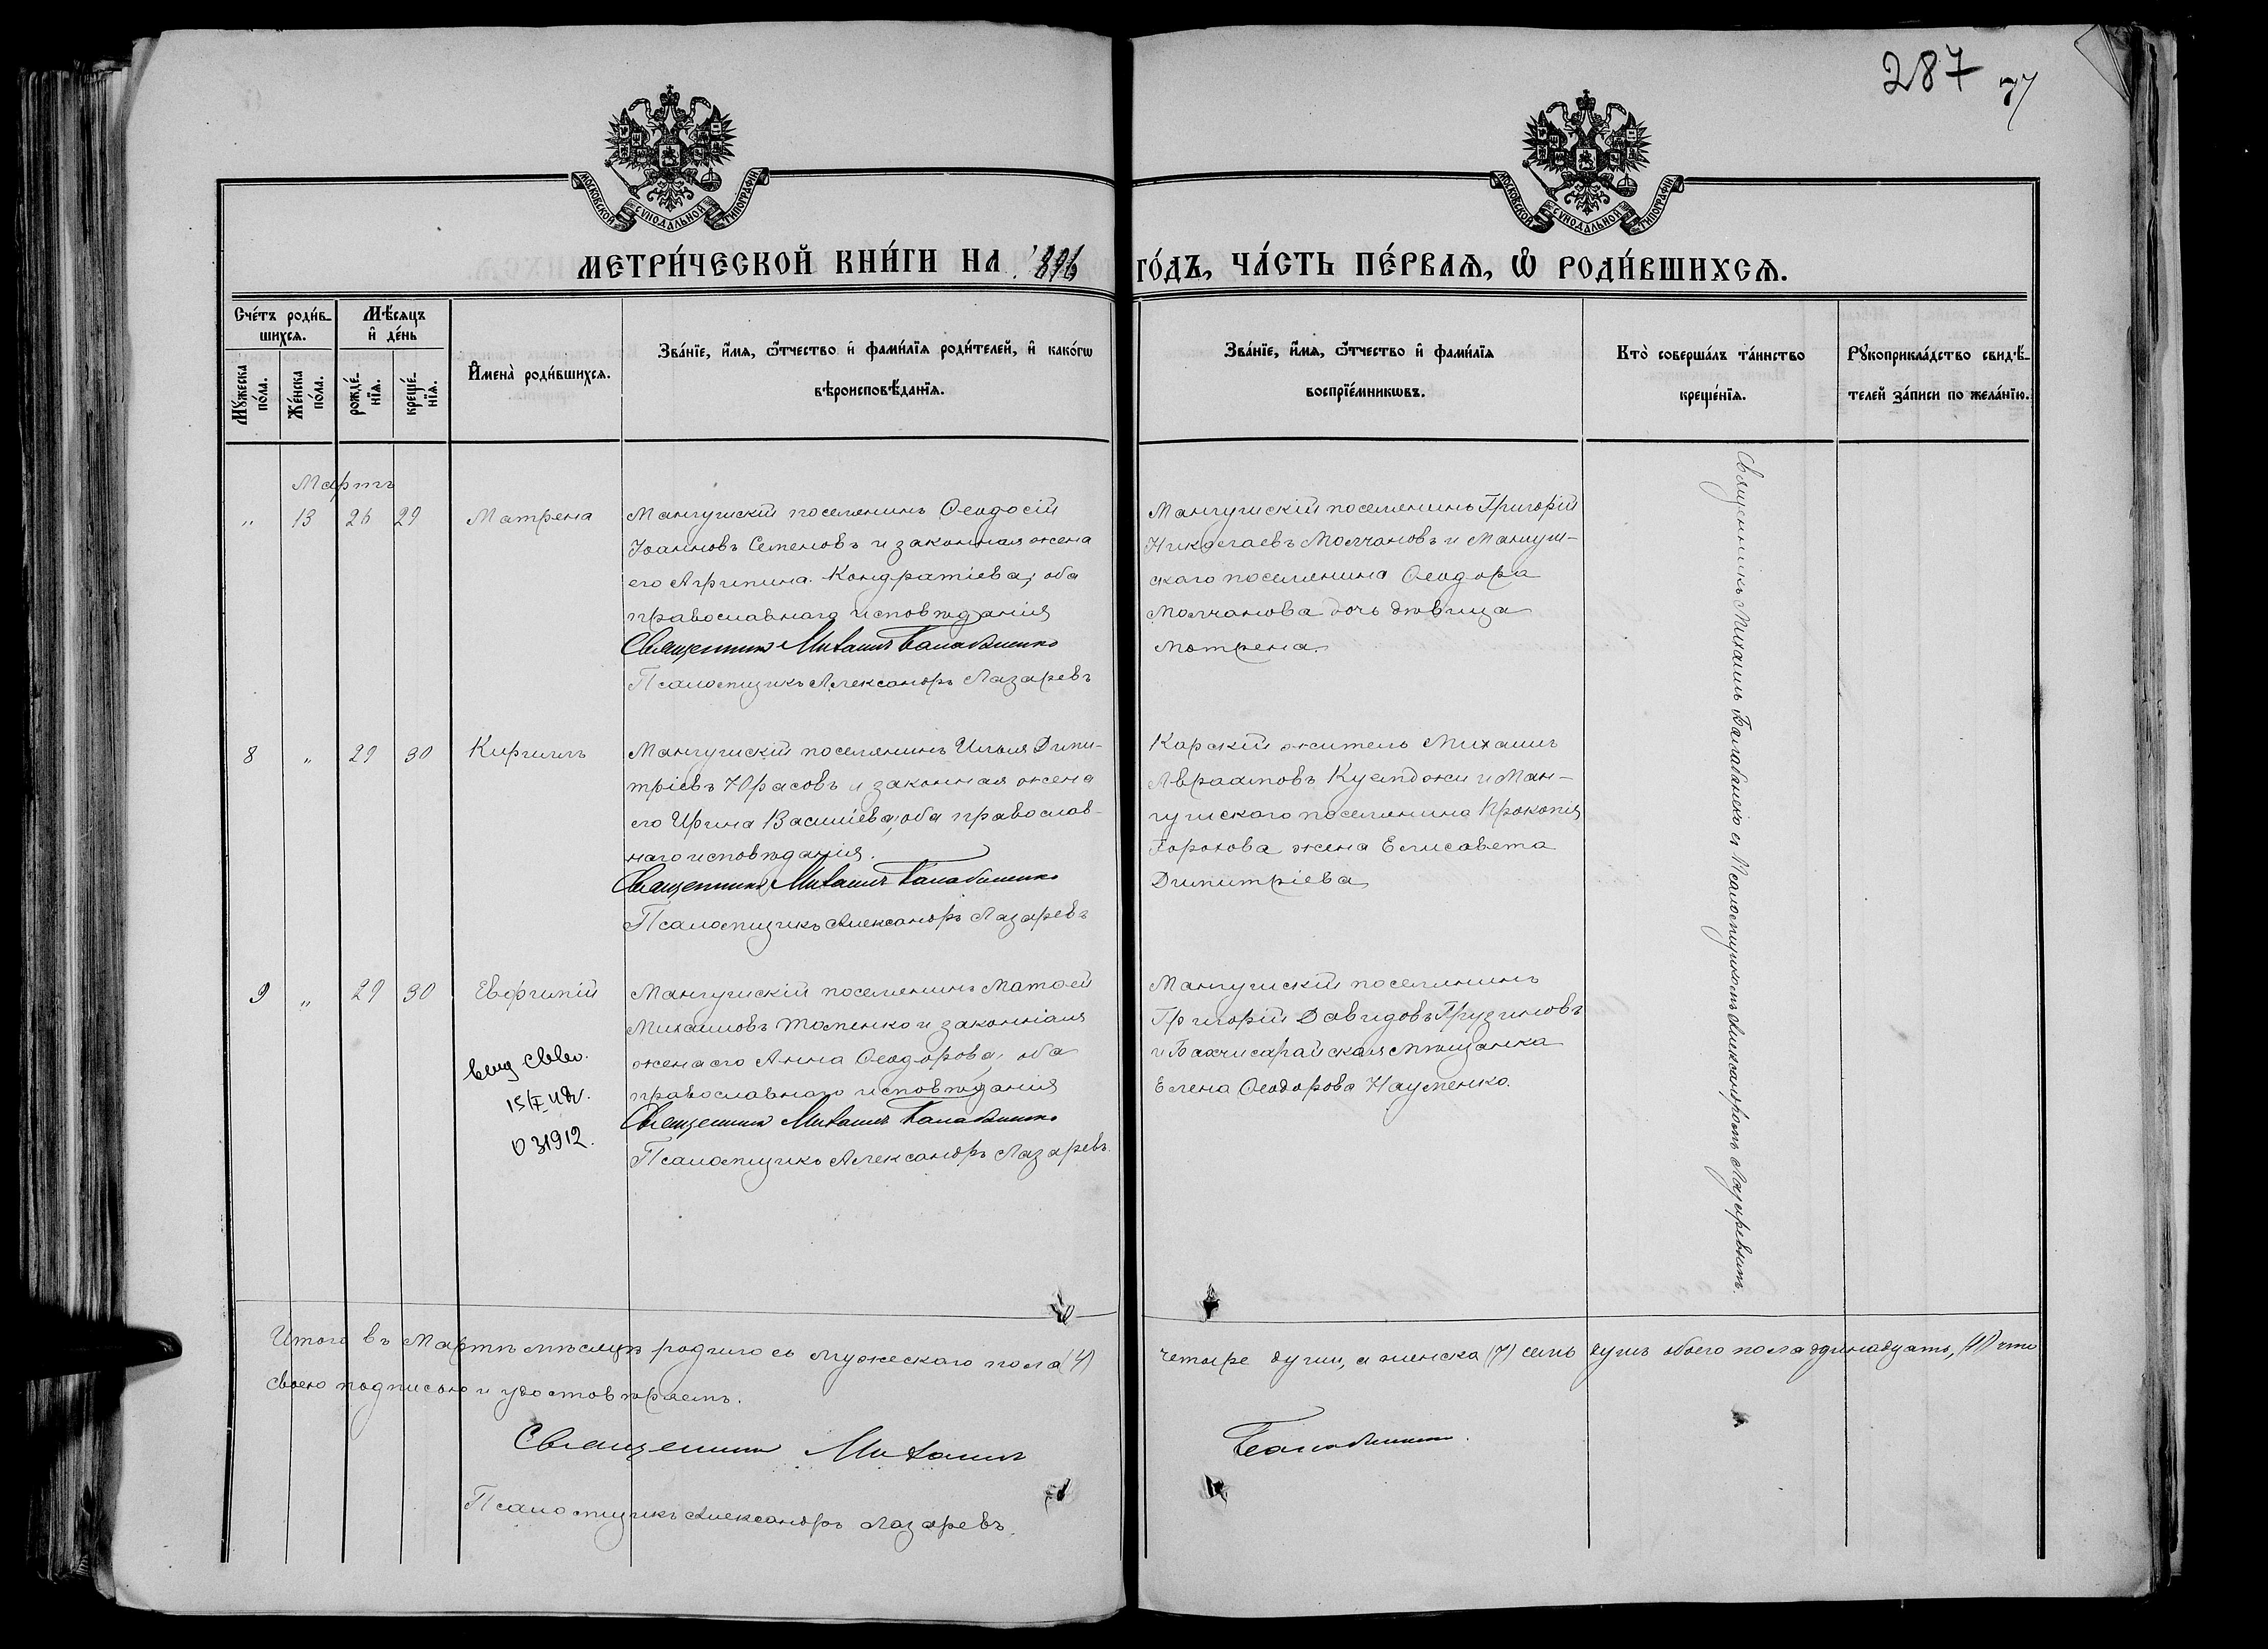 287 77
МОСКОВСКОЙ СУНОДАЛЬНОЙ ТИПОГРАФІИ
МОСКОВСКОЙ СУНОДАЛЬНОЙ ТИПОГРАФІИ
МЕТРИ́ЧЕСКОЙ КНИ́ГИ НА 1896 ГО́ДЪ, ЧА́СТЬ ПЕ́РВАѦ, Ѡ҆ РОДИ́ВШИХСѦ.
Сче́тъ роди́в-
шихсѧ.
Мꙋ́жеска по́ла.
Же́нска по́ла.
Мѣ́сѧцъ
и҆ де́нь
рожде́-нїѧ.
креще́-нїѧ.
И҆мена̀ роди́вшихсѧ.
Зва́нїе, и҆́мѧ, ѻ҆́тчество и҆ фами́лїѧ роди́телей, и҆ како́гѡ
вѣроисповѣ́данїѧ.
Зва́нїе, и҆́мѧ, ѻ҆́тчество и҆ фами́лїѧ
воспрїе́мникѡвъ.
Кто̀ соверша́лъ та́инство
креще́нїѧ.
Рꙋкоприкла́дство свидѣ́-
телей за́писи по жела́нїю.
Мартъ
" 13 26 29 Матрена
Мангушскій поселянинъ Ѳеодосій
Іоанновъ Семеновъ и законная жена
его Агрипина Кондратіева, оба
православнаго исповѣданія
Священникъ Михаилъ Балабаненко
Псаломщикъ Александръ Лазаревъ
Мангушскій поселянинъ Григорій
Николаевъ Молчановъ и Мангуш-
скаго поселянина Ѳеодора
Молчанова дочь дѣвица
Матрена.
8 " 29 30 Кириллъ
Мангушскій поселянинъ Илья Дими-
тріевъ Юрасовъ и законная жена
его Ирина Василіева, оба православ-
наго исповѣданія.
Священникъ Михаилъ Балабаненко
Псаломщикъ Александръ Лазаревъ
Карскій житель Михаилъ
Авраамовъ Куюмджи и Ман-
гушскаго поселянина Прокопія
Горохова жена Елисавета
Димитріева
9 " 29 30 Евфимій
Мангушскій поселянинъ Матѳей
Михаиловъ Томенко и законная
жена его Анна Ѳеодорова, оба
православнаго исповѣданія
Священникъ Михаилъ Балабаненко
Псаломщикъ Александръ Лазаревъ.
031912.
Мангушскій поселянинъ
Григорій Давидовъ Грузиновъ
и Бахчисарайская мѣщанка
Елена Ѳеодорова Науменко.
Священникъ Михаилъ Балабаненко съ Псаломщикомъ Александромъ Лазаревымъ.
Итого въ Мартѣ мѣсяцѣ родилось мужескаго пола (4) четыре души, а женска (7) семь душъ обоего пола одинадцать, (11) что
своею подписью и удостовѣряемъ.
Священникъ Михаилъ Балабаненко.
Псаломщикъ Александръ Лазаревъ.